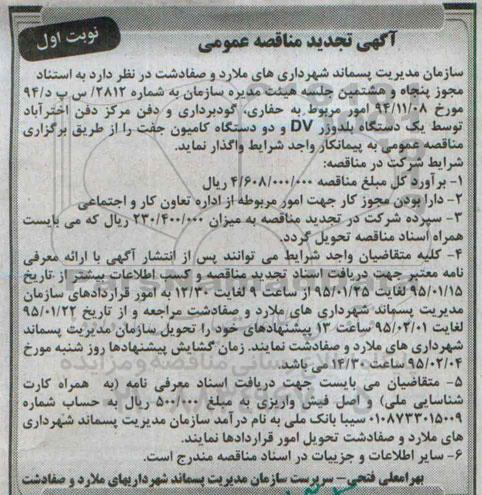 نوبت اول
آگهی تجدید مناقصه عمومی
سازمان مدیریت پسماند شهرداری های ملارد و صفادشت در نظر دارد به استناد
مجوز پنجاه و هشتمین جلسه هیئت مدیره سازمان به شماره ۲۸۱۲/ س پ د/۹۴
مورخ ۹۴/۱۱/۰۸ امور مربوط به حفاری، گودبرداری و دفن مرکز دفن اخترآباد
توسط یک دستگاه بلدوزر DV و دو دستگاه کامیون جفت را از طریق برگزاری
مناقصه عمومی به پیمانکار واجد شرایط واگذار نماید.
شرایط شرکت در مناقصه:
۱- برآورد کل مبلغ مناقصه ۴/۶۰۸/۰۰۰/۰۰۰ ریال
۲- دارا بودن مجوز کار جهت امور مربوطه از اداره تعاون کار و اجتماعی
۳- سپرده شرکت در تجدید مناقصه به میزان ۲۳۰/۴۰۰/۰۰۰ ریال که می بایست
همراه اسناد مناقصه تحویل گردد.
۴- کلیه متقاضیان واجد شرایط می توانند پس از انتشار آگهی با ارائه معرفی
نامه معتبر جهت دریافت اسناد تجدید مناقصه و کسب اطلاعات بیشتر از تاریخ
۹۵/۰۱/۱۵ لغایت ۹۵/۰۱/۲۵ از ساعت ۹ لغایت ۱۲/۳۰ به امور قراردادهای سازمان
مدیریت پسماند شهرداری های ملارد و صفادشت مراجعه و از تاریخ ۹۵/۰۱/۲۲
لغایت ۹۵/۰۲/۰۱ ساعت ۱۳ پیشنهادهای خود را تحویل سازمان مدیریت پسماند
شهرداری های ملارد و صفادشت نمایند. زمان گشایش پیشنهادها روز شنبه مورخ
۹۵/۰۲/۰۴ ساعت ۱۴/۳۰ می باشد.
۵- متقاضیان می بایست جهت دریافت اسناد معرفی نامه (به همراه کارت
شناسایی ملی) و اصل فیش واریزی به مبلغ ۵۰۰/۰۰۰ ریال به حساب شماره
۰۱۰۸۷۳۳۰۱۵۰۰۹ سیبا بانک ملی به نام درآمد سازمان مدیریت پسماند شهرداری
های ملارد و صفادشت تحویل امور قراردادها نمایند.
۶- سایر اطلاعات و جزییات در اسناد مناقصه مندرج است.
بهرامعلی فتحی- سرپرست سازمان مدیریت پسماند شهرداریهای ملارد و صفادشت